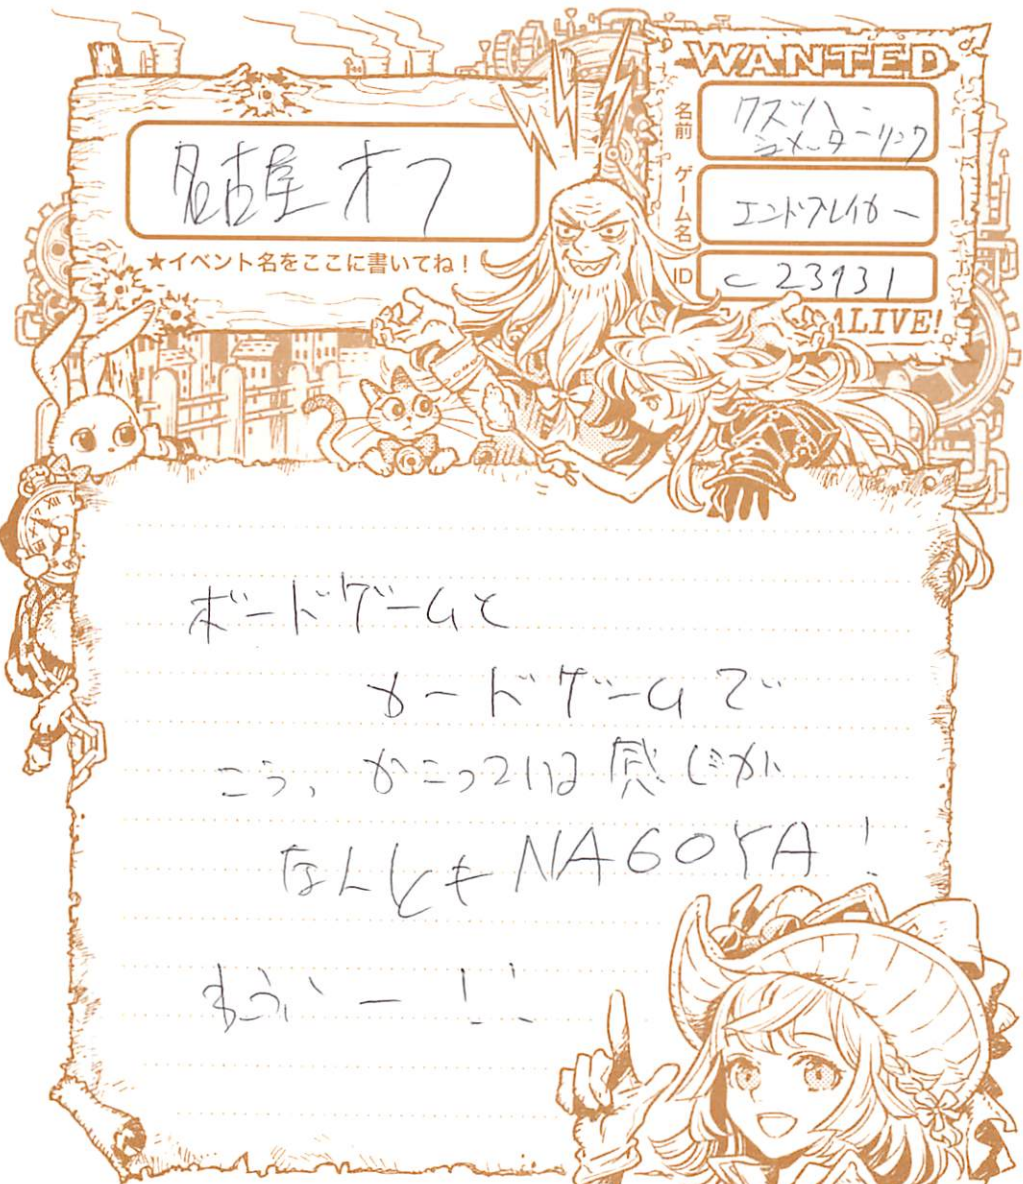 名古屋オフ
★イベント名をここに書いてね!
WANTED
名前
クズハ・
シュメーターリンク
ゲーム名
エンドブレイカー
ID
c23931
ALIVE!
ボードゲームと
カードゲームで
こう、かこってい感じが
なんとも NAGOYA!